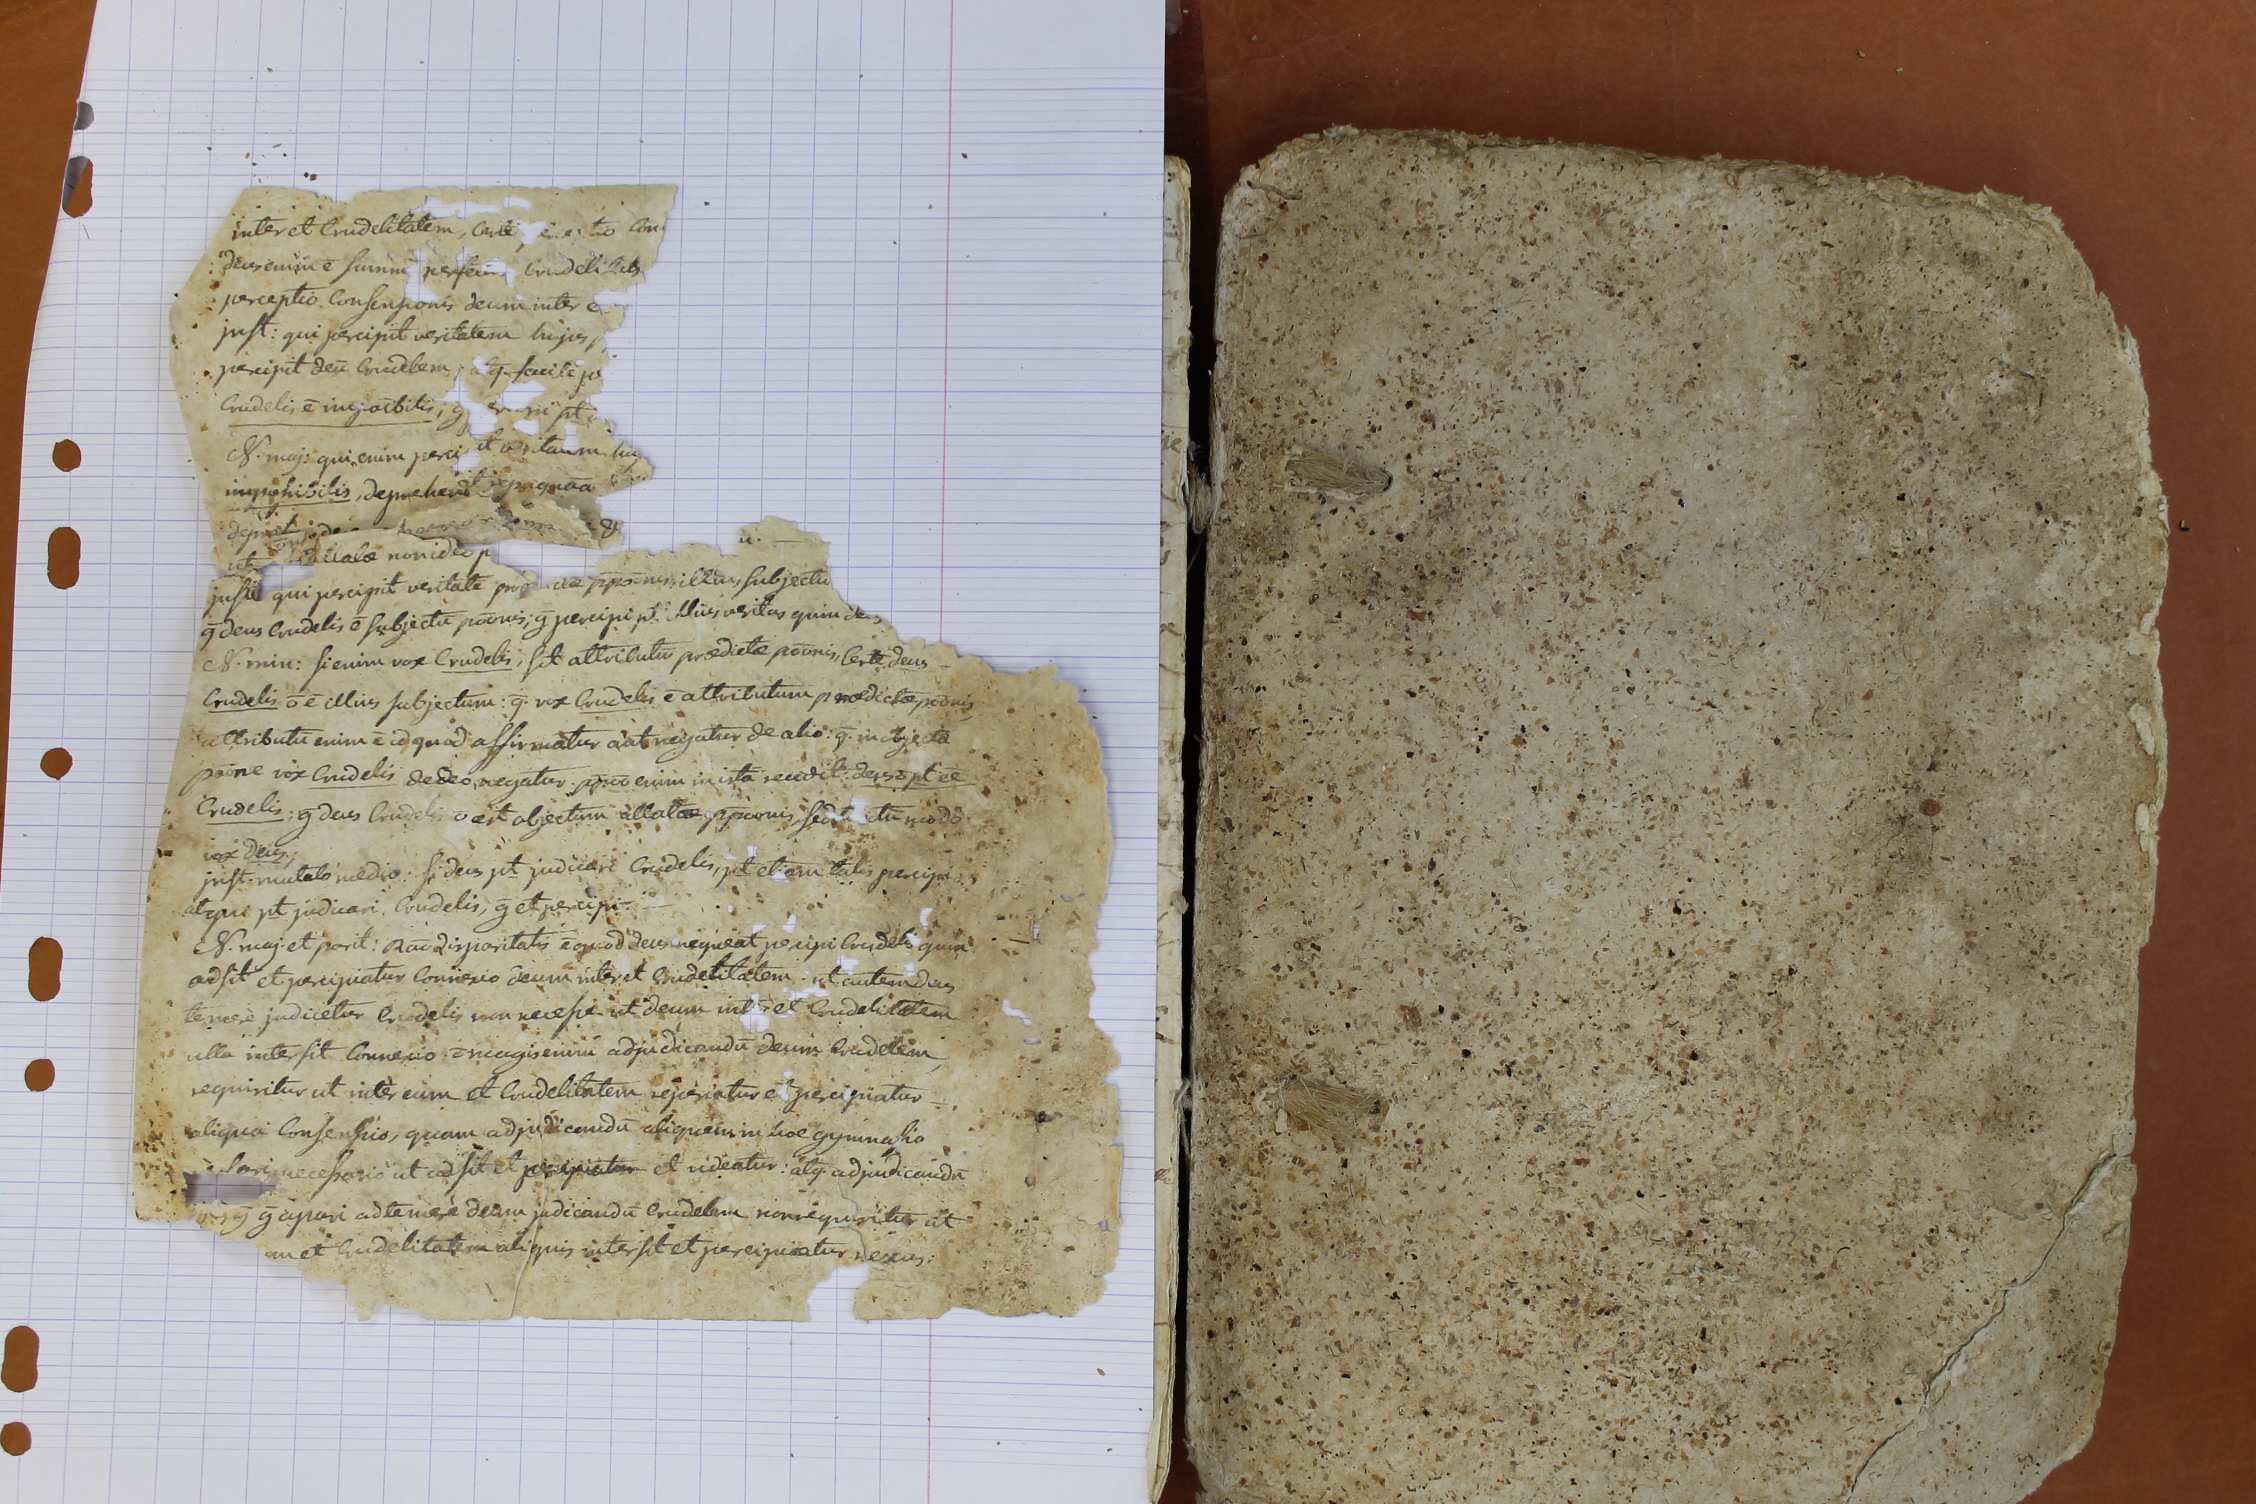 inter et Crudelitatem, Certe, Con
deus enim ē summē perfectus Crudelitas
perceptio Consensionis deum inter e
jnst: qui percipit veritatem hujus p
percipit deū Crudelem, atq. facile
Crudelis ē impōibilis; g
N. maj: qui enim percipit veritatem huj
impossibilis, deprehendit repugnaā

ut allatæ non ideo p
jnst: qui percipit veritatē præ ppōnis illius subjectū
g deus Crudelis ē subjectū pōnis; g percipi pt illius veritas quin deus
N. min: si enim vox Crudelis, sit attributū prædictæ pōnis, Certe deus
Crudelis ō ē illius subjectum: g. vox Crudelis ē attributum prædictæ pōnis
attributū enim ē id quod affirmatur aut negatur de alio: g. in objectā
pōne vox Crudelis de deo negatur. ppō enim in istā recidit: deus ō pt ēē
Crudelis; g deus Crudelis ō est objectum allatæ ppōnis, sed tm̄ modo
vox deus;
jnst. mutato medio: si deus pt judicari Crudelis, pt etiam talis percipi:
atqui pt judicari Crudelis, g et percipi.
N. maj et parit: Raō disparitatis ē quod deus nequeat percipi Crudelis quin
adsit et percipiatur Connexio deum inter et Crudelitatem. ut autem deus
temerè judicetur Crudelis non necesse ut deum inter et Crudelitatem
ulla intersit Connexio. ō magis enim ad judicandū deum Crudelem,
requiritur ut inter eum et Crudelitatem reperiatur et percipiatur
aliqua Consensio, quam ad judicandū aliquem in hoc gymnasio
necessariò ut adsit et percipiatur et videatur: atq. ad judicandū
g a pari ad temerè deum judicandū Crudelem non requiritur ut
um et Crudelitatem aliquis intersit et percipiatur nexus: